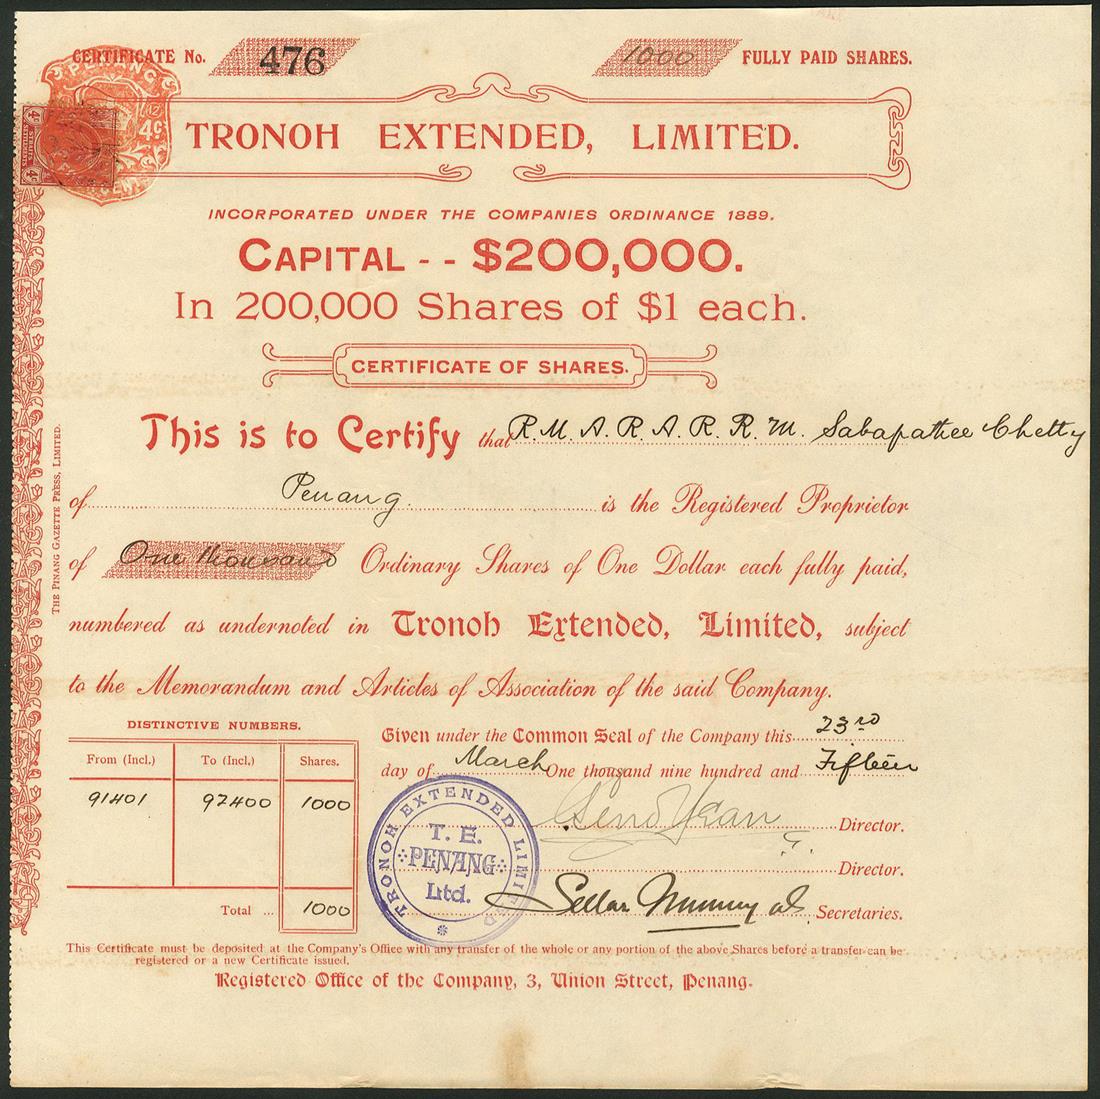 CERTIFICATE No. 476
1000 FULLY PAID SHARES.
PENANG
4c
TRONOH EXTENDED, LIMITED.
INCORPORATED UNDER THE COMPANIES ORDINANCE 1889.
CAPITAL - - $200,000.
In 200,000 Shares of $1 each.
CERTIFICATE OF SHARES.
This is to Certify that R. M. A. R. A. R. R. M. Sabapathee Chetty
of Penang. is the Registered Proprietor
of One thousand Ordinary Shares of One Dollar each fully paid,
numbered as undernoted in Tronoh Extended, Limited, subject
to the Memorandum and Articles of Association of the said Company.
THE PINANG GAZETTE PRESS, LIMITED.
DISTINCTIVE NUMBERS.
From (Incl.) To (Incl.) Shares.
91401 92400 1000
Total ... 1000
Given under the Common Seal of the Company this 23rd
day of March One thousand nine hundred and Fifteen
Director.
Director.
Secretaries.
TRONOH EXTENDED LIMITED
T. E.
PENANG
Ltd.
This Certificate must be deposited at the Company's Office with any transfer of the whole or any portion of the above Shares before a transfer can be
registered or a new Certificate issued.
Registered Office of the Company, 3, Union Street, Penang.